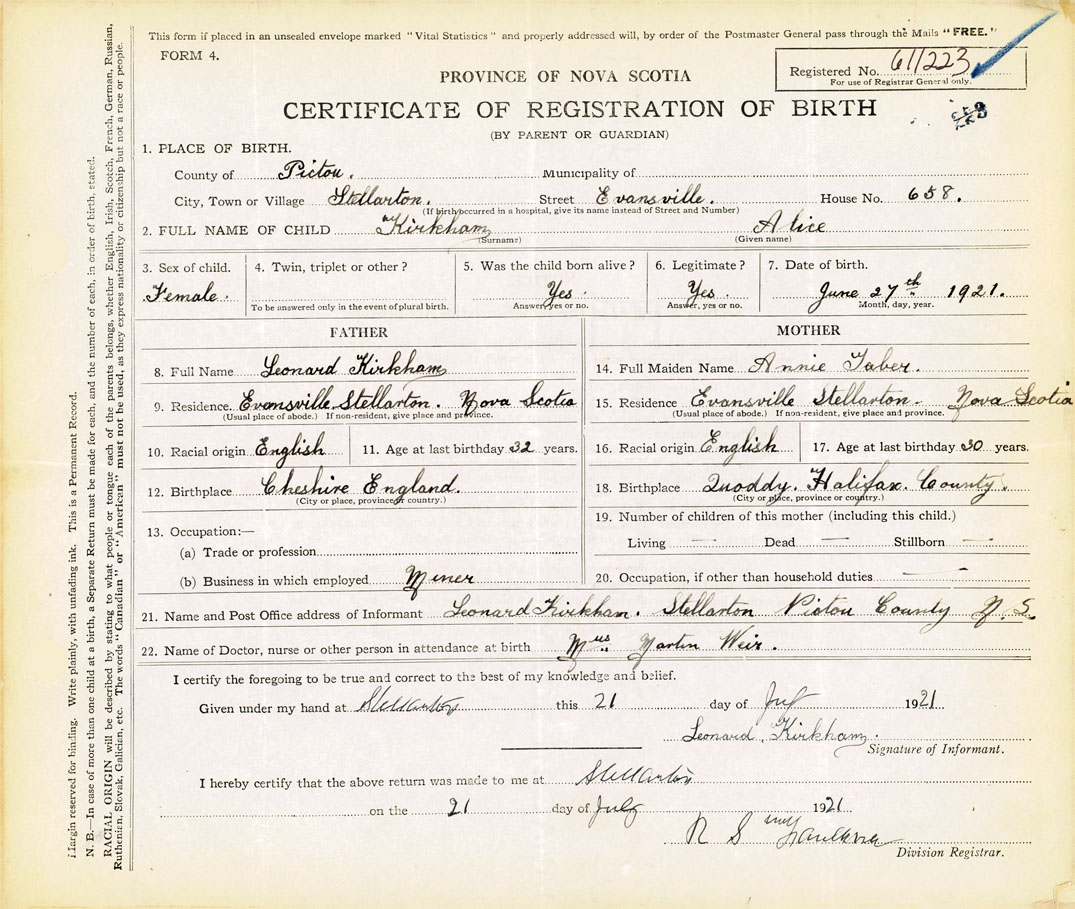 This form if placed in an unsealed envelope marked "Vital Statistics" and properly addressed will, by order of the Postmaster General pass through the Mails "FREE."
FORM 4.
Registered No. 611223
For use of Registrar General only.
PROVINCE OF NOVA SCOTIA
CERTIFICATE OF REGISTRATION OF BIRTH
(BY PARENT OR GUARDIAN)
1. PLACE OF BIRTH.
County of Pictou. Municipality of
City, Town or Village Stellarton. Street Evansville. House No. 658.
(If birth occurred in a hospital, give its name instead of Street and Number)
2. FULL NAME OF CHILD Kirkham Alice
(Surname) (Given name)
3. Sex of child. 4. Twin, triplet or other? 5. Was the child born alive? 6. Legitimate? 7. Date of birth.
Female. Yes Yes. June 27th 1921.
To be answered only in the event of plural birth. Answer, yes or no. Answer, yes or no. Month, day, year.
FATHER MOTHER
8. Full Name Leonard Kirkham 14. Full Maiden Name Annie Taber.
9. Residence. Evansville Stellarton. Nova Scotia 15. Residence Evansville Stellarton. Nova Scotia
(Usual place of abode.) If non-resident, give place and province. (Usual place of abode.) If non-resident, give place and province.
10. Racial origin English 11. Age at last birthday 32 years. 16. Racial origin English 17. Age at last birthday 30 years.
12. Birthplace Cheshire England. 18. Birthplace Quoddy. Halifax. County.
(City or place, province or country.) (City or place, province or country.)
13. Occupation:— 19. Number of children of this mother (including this child.)
(a) Trade or profession Living — Dead — Stillborn —
(b) Business in which employed Miner 20. Occupation, if other than household duties —
21. Name and Post Office address of Informant Leonard Kirkham. Stellarton Pictou County N.S.
22. Name of Doctor, nurse or other person in attendance at birth Mrs Martin Weir.
I certify the foregoing to be true and correct to the best of my knowledge and belief.
Given under my hand at Stellarton this 21 day of July 1921
Leonard. Kirkham.
Signature of Informant.
I hereby certify that the above return was made to me at Stellarton
on the 21 day of July 1921
Division Registrar.
Margin reserved for binding. Write plainly, with unfading ink. This is a Permanent Record.
N. B.—In case of more than one child at a birth, a Separate Return must be made for each, and the number of each, in order of birth, stated.
RACIAL ORIGIN will be described by stating to what people or tongue each of the parents belongs, whether English, Irish, Scotch, French, German, Russian,
Ruthenian, Slovak, Galician, etc. The words "Canadian" or "American" must not be used, as they express nationality or citizenship but not a race or people.